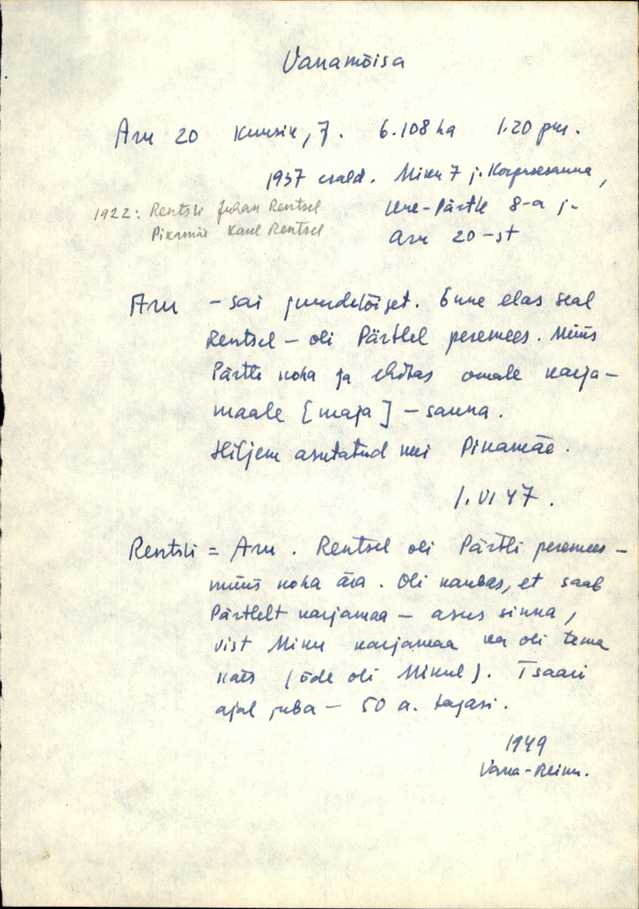 Vanamõisa
Aru 20 Kuusik, J. 6.108 ha 1.20 põs.
1937 erald. Miku 7 j. Korpusesauna,
1922: Rentsli Juhan Rentsel
Uue-Pärtle 8-a j-
Pikamäe Karel Rentsel
Aru 20-st
Aru - sai juurdelõiget. Enne elas seal
Rentsel - oli Pärtlel peremees. Müüs
Pärtli koha ja ehitas omale karja-
maale [maja] - sauna.
Hiljem asutatud kui Pikamäe.
1. VI 47.
Rentsli = Aru. Rentsel oli Pärtli peremees -
müüs koha ära. Oli kaubas, et saab
Pärtlelt karjamaa - asus sinna,
vist Miku karjamaa ka oli tema
käes (õde oli Mikul). Tsaari
ajal juba - 50 a. tagasi.
1949
Vana-Miku.